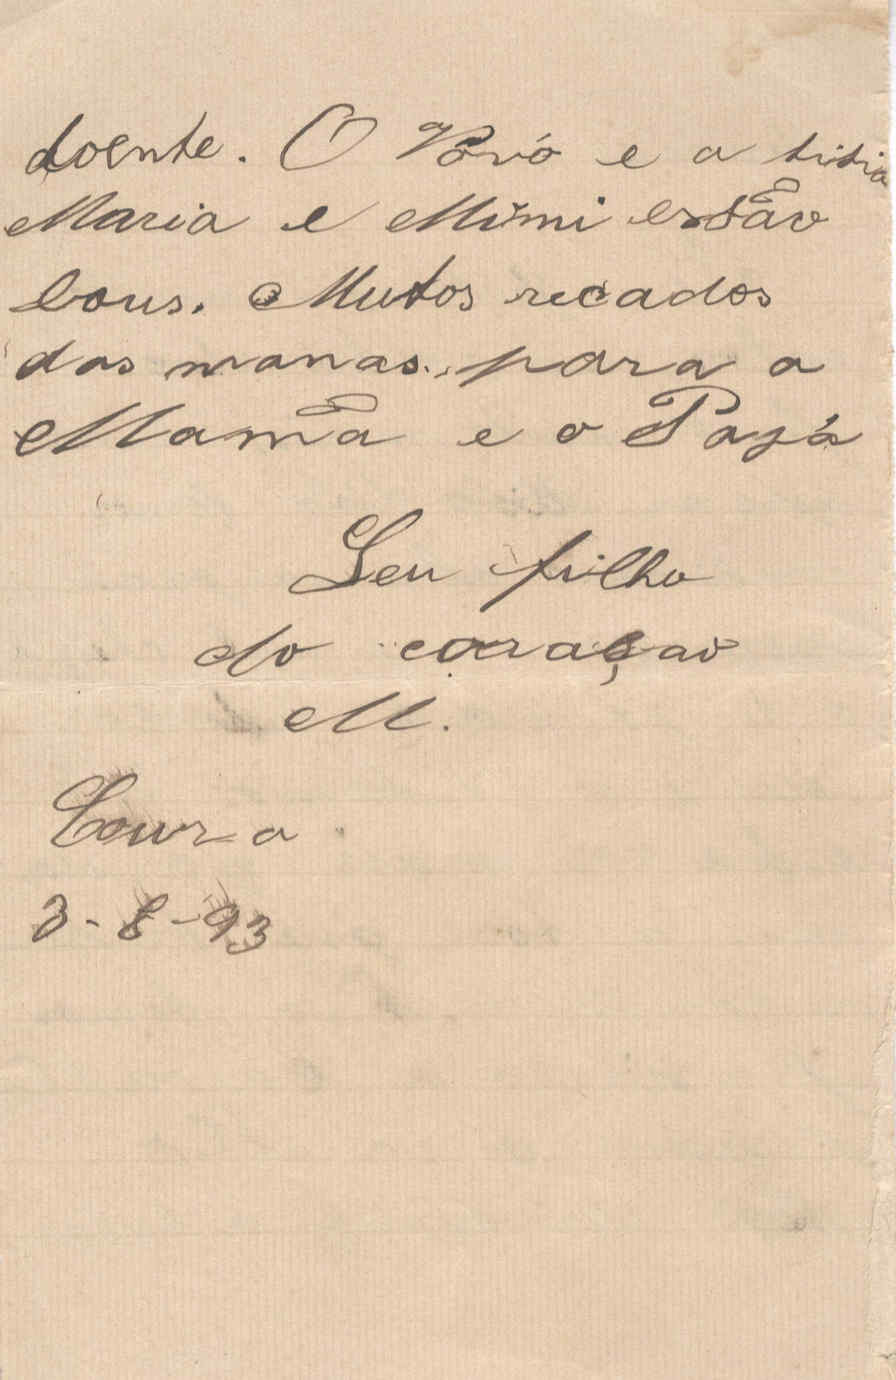 doente. O Vovó e a titia
Maria e Mimi estão
bons. Muitos recados
das manas, para a
Mamã e o Papá
Seu filho
do coração
M.
Coura
3-8-93